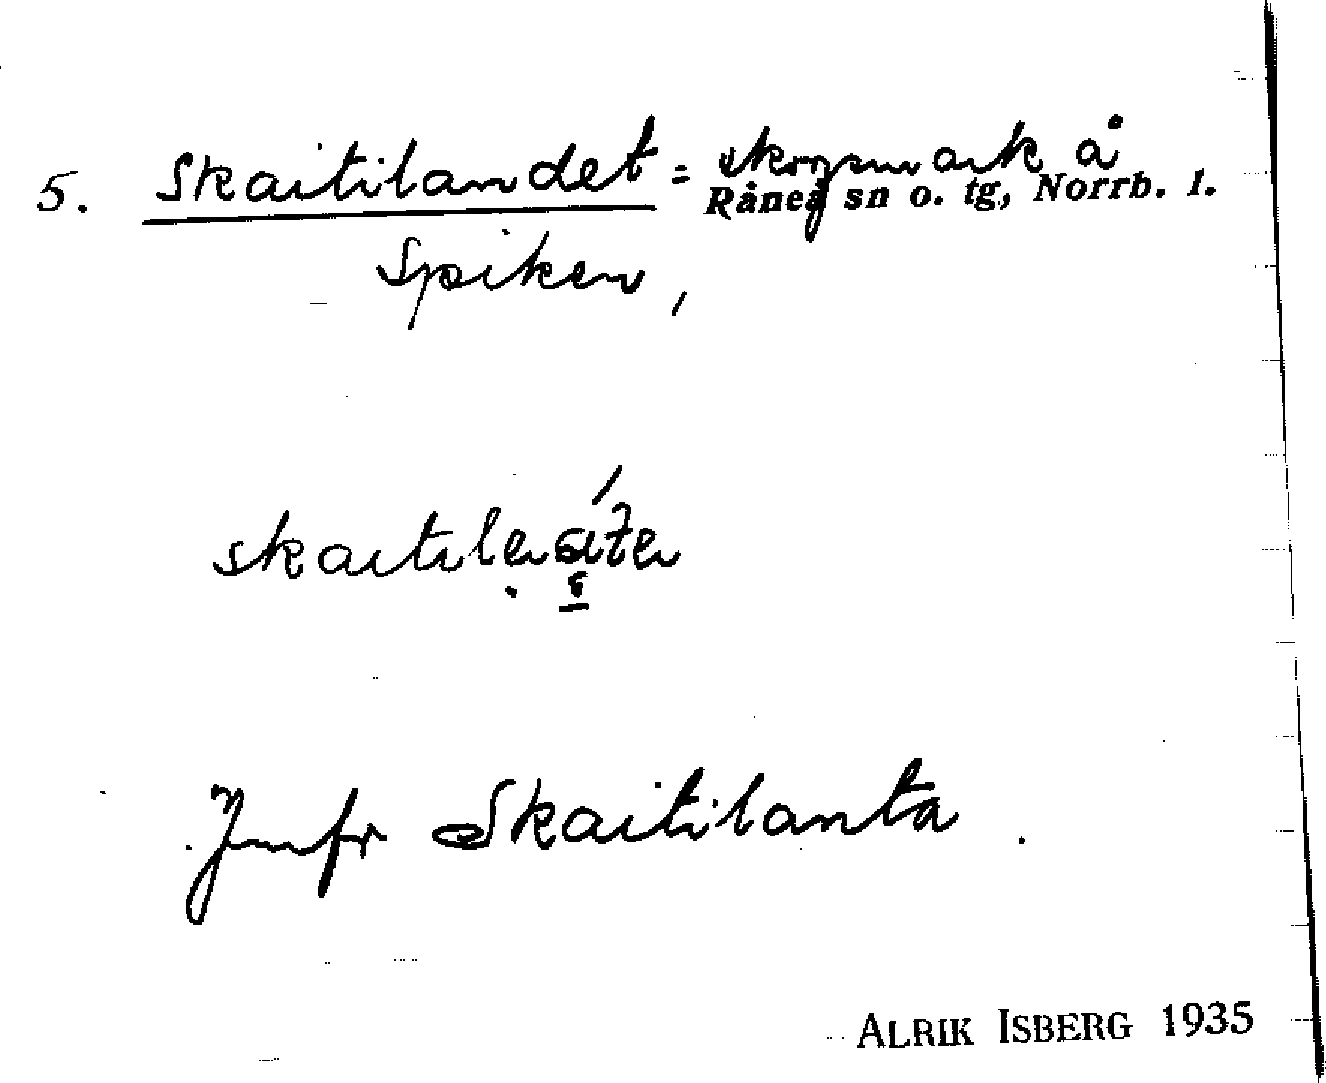 5. Skaitilandet = skogsmark å
Råneå sn o. tg, Norrb. l.
Spiken,
Jmfr Skaitilanta.
ALRIK ISBERG 1935